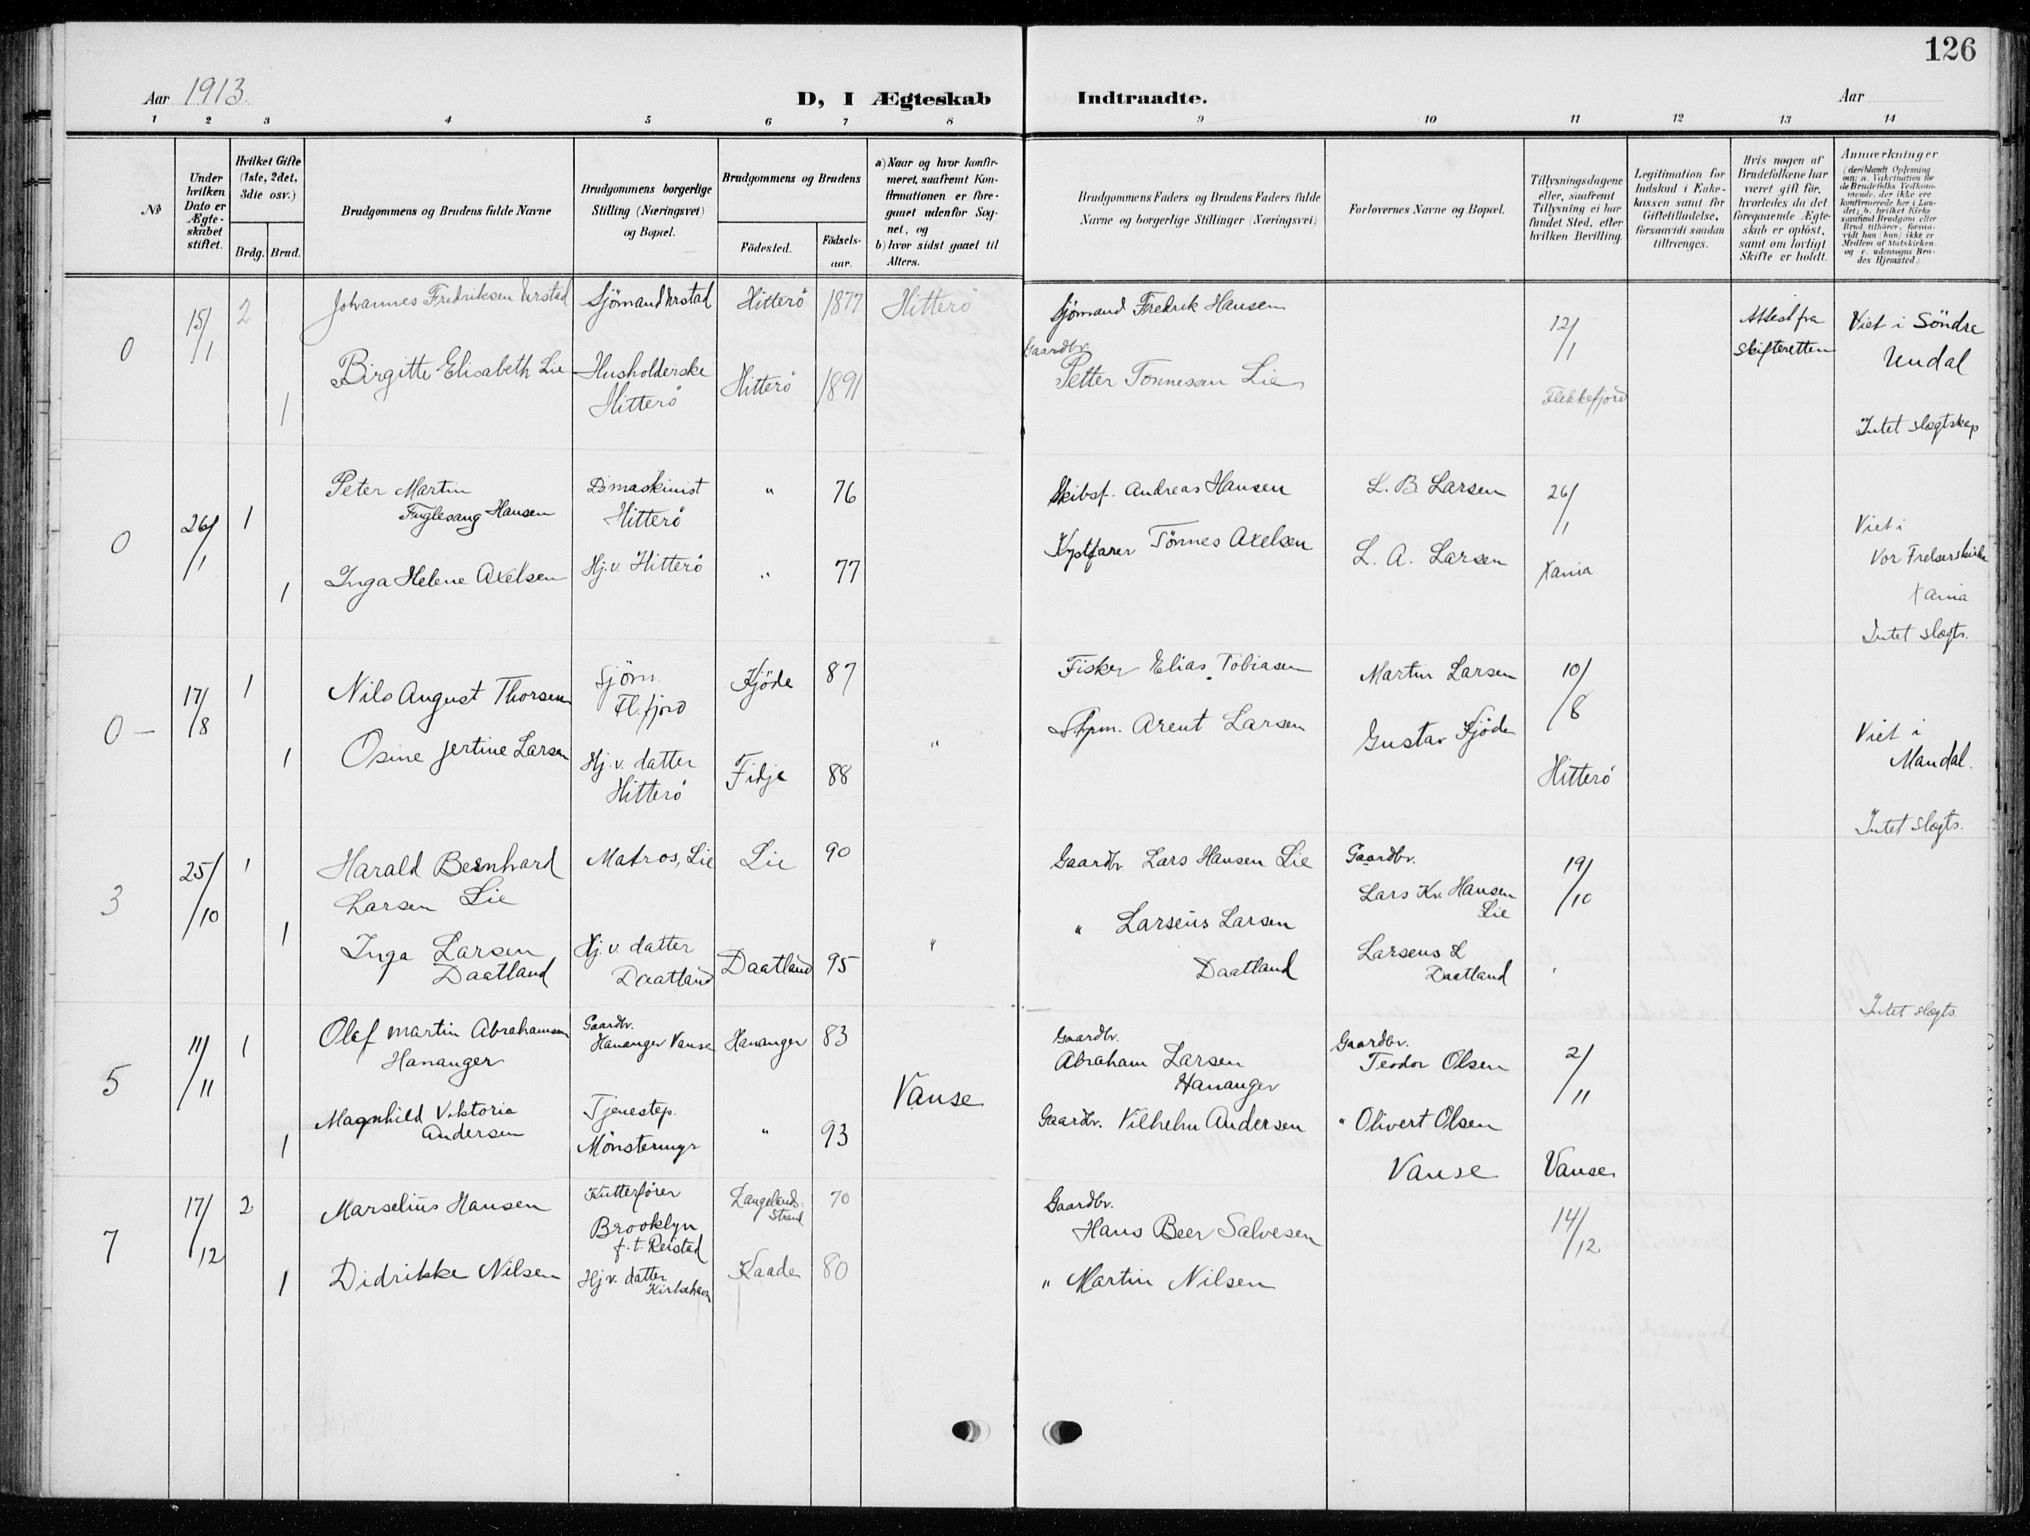 126
Aar 1913.
D, I Ægteskab Indtraadte.
Aar
1 2 3 4 5 6 7 8 9 10 11 12 13 14
№
Under hvilken Dato er Ægteskabet stiftet.
Hvilket Gifte (1ste, 2det, 3die osv.)
Brdg. Brud.
Brudgommens og Brudens fulde Navne
Brudgommens borgerlige Stilling (Næringsvei) og Bopæl.
Brudgommens og Brudens
Födested.
Födselsaar.
a) Naar og hvor konfirmeret, saafremt Konfirmationen er foregaaet udenfor Sognet, og
b) hvor sidst gaaet til Alters.
Brudgommens Faders og Brudens Faders fulde Navne og borgerlige Stillinger (Næringsvei)
Forlovernes Navne og Bopæl.
Tillysningsdagene eller, saafremt Tillysning ei har fundet Sted, efter hvilken Bevilling.
Legitimation for Indskud i Enkekassen samt for Giftetilladelse, forsaavidt saadan tiltrænges.
Hvis nogen af Brudefolkene har været gift för, hvorledes da det foregaaende Ægteskab er oplöst, samt om lovligt Skifte er holdt.
Anmærkninger
0 15/1 2 Johannes Fredriksen Urstad Sjömand Urstad Hitterö 1877 Hitterö Sjömand Fredrik Hansen 12/1 Attest fra skifteretten Viet i Söndre Undal
1 Birgitte Elisabeth Lie Husholderske Hitterö Hitterö 1891 Gaardbr. Petter Tönnesen Lie Flekkefjord Intet slegtskap
0 26/1 1 Peter Martin Fuglesang Hansen Dsmaskinist Hitterö " 76 Skibsf. Andreas Hansen L. B. Larsen 26/1 Viet i Vor Frelserskirke Xania
1 Inga Helene Axelsen Hj.v. Hitterö " 77 Kystfarer Tönnes Axelsen L. A. Larsen Xania Intet slegts.
0 — 17/8 1 Nils August Thorsen Sjöm. Fl.fjord Kjöde 87 Fisker Elias Tobiasen Martin Larsen 10/8 Viet i Mandal.
1 Osine Jertine Larsen Hj.v. datter Hitterö Fidje 88 " Skpm. Arent Larsen Gustav Kjöde Hitterö Intet slegts.
3 25/10 1 Harald Bernhard Larsen Lie Matros, Lie Lie 90 Gaardbr. Lars Hansen Lie Gaardbr. Lars Kr. Hansen Lie 19/10
1 Inga Larsen Daatland Hj.v. datter Daatland Daatland 95 " " Larseus Larsen Daatland Larseus L Daatland Intet slegts.
5 11/11 1 Olaf Martin Abrahamsen Hananger Gaardbr. Hananger Vanse Hananger 83 Vanse Gaardbr. Abraham Larsen Hananger Gaardbr. Teodor Olsen 2/11
1 Magnhild Viktoria Andersen Tjenestep. Mönstermyr " 93 Gaardbr. Vilhelm Andersen " Olivert Olsen Vanse Vanse
7 17/12 2 Marselius Hansen Kutterförer Brooklyn f. t. Reistad Langelands Strand 70 Gaardbr. Hans Beer Salvesen 14/12
1 Didrikke Nilsen Hj.v. datter Kirkehavn Kaade 80 " Martin Nilsen